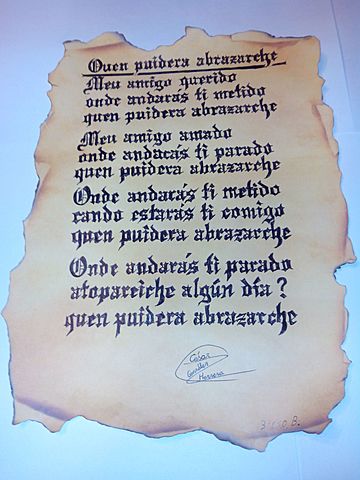 Quen puidera abrazarche
Meu amigo querido
onde andarás ti metido
quen puidera abrazarche
Meu amigo amado
onde andarás ti parado
quen puidera abrazarche
Onde andarás ti metido
cando estarás ti comigo
quen puidera abrazarche
Onde andarás ti parado
atopareiche algún día ?
quen puidera abrazarche
César
Guillén
Herrera
B.